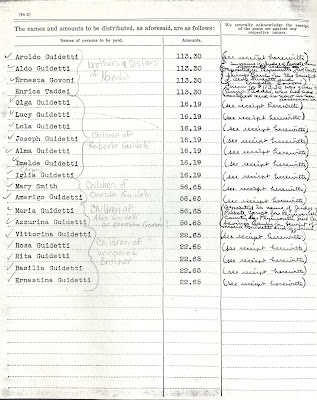 (84-2)
The names and amounts to be distributed, as aforesaid, are as follows:
We severally acknowledge the receipt
of the sum set against our
respective names.
Names of persons to be paid.
Amounts.
Aroldo Guidetti 113.30 (see receipt herewith)
Aldo Guidetti brothers & sisters 113.30
Ernesta Govoni of Nando 113.30
Enrica Taddei 113.30
Olga Guidetti 16.19 (see receipt herewith)
Lucy Guidetti 16.19 (see receipt herewith)
Lola Guidetti 16.19 (see receipt herewith)
Joseph Guidetti Children of 16.19 (see receipt herewith)
Alma Guidetti Roberto Guidetti 16.19 (see receipt herewith)
Imelde Guidetti 16.19 (see receipt herewith)
Iglia Guidetti 16.19 (see receipt herewith)
Mary Smith Children of 56.65 (see receipt herewith)
Amerigo Guidetti Oreste Guidetti 56.65 (see receipt herewith)
Maria Guidetti Children of 56.65
Azzurina Guidetti 56.65
Vittorina Guidetti 22.65 (see receipt herewith)
Rosa Guidetti Children of 22.65 (see receipt herewith)
Rita Guidetti unnamed 22.65 (see receipt herewith)
Basilia Guidetti Brother 22.65 (see receipt herewith)
Ernestina Guidetti 22.65 (see receipt herewith)